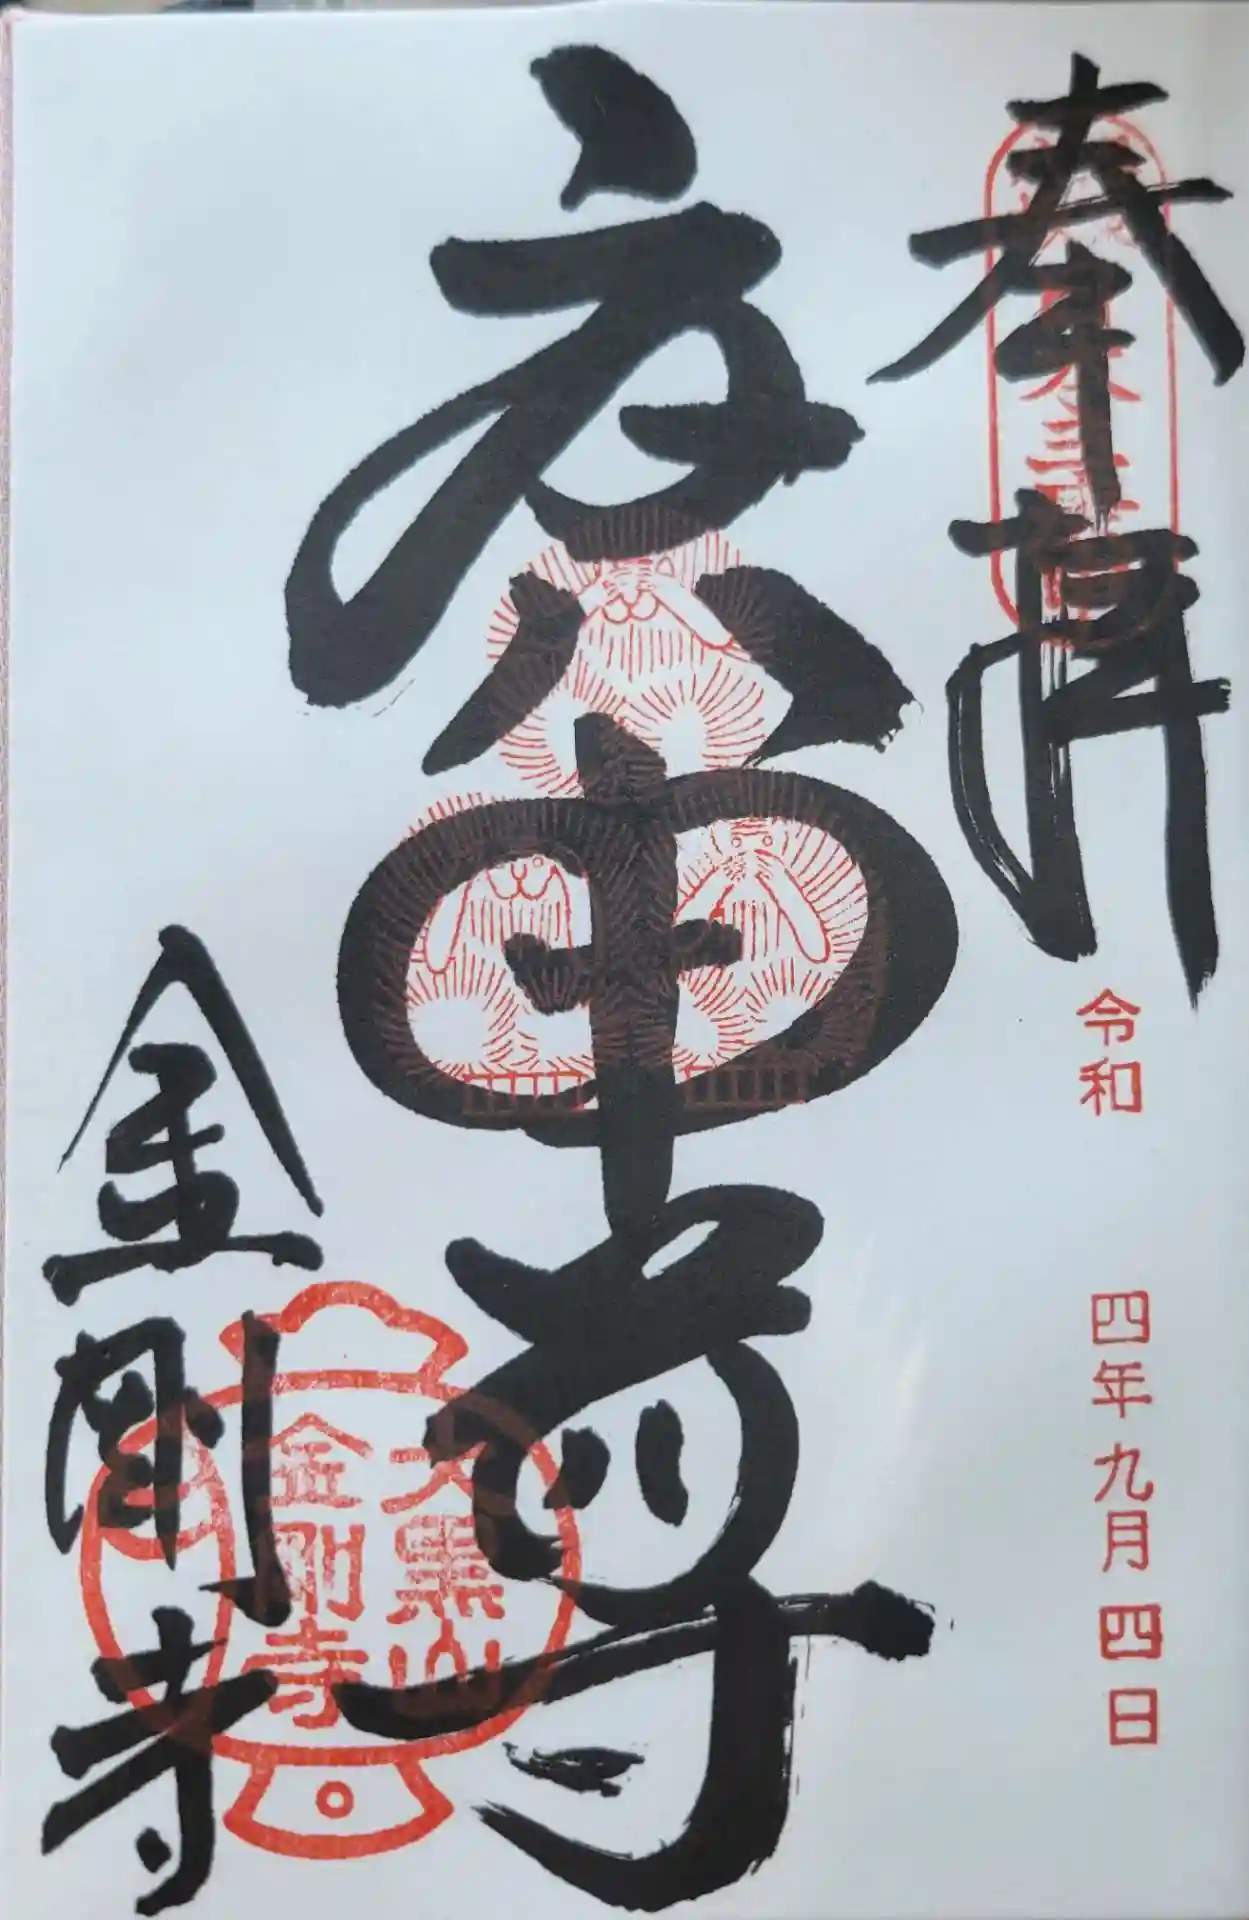 奉拝
令和 四年 九月 四日
庚申尊
金剛寺
大黒山
金剛寺